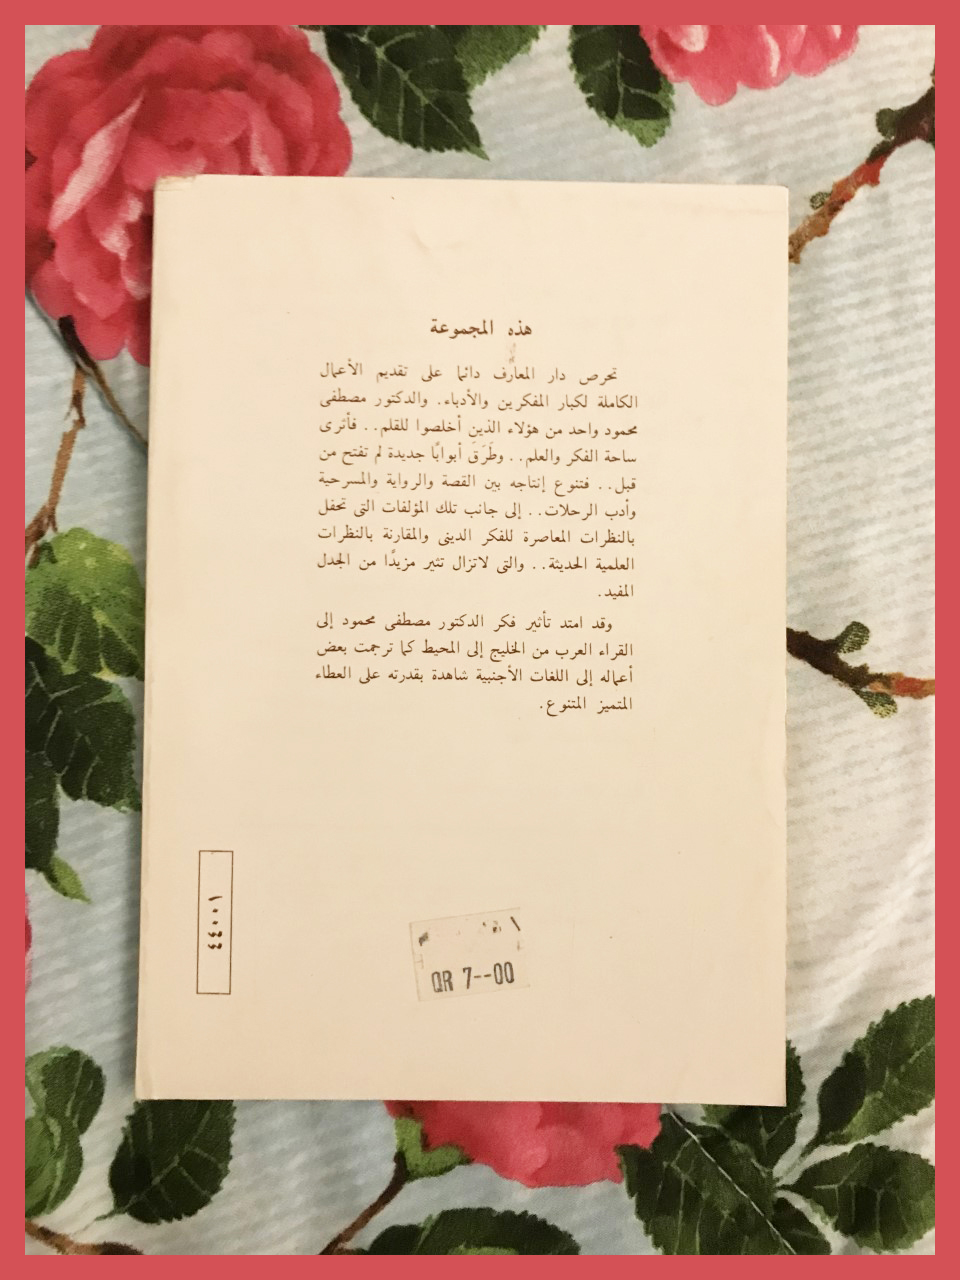 هذه المجموعة
تحرص دار المعارف دائما على تقديم الأعمال
الكاملة لكبار المفكرين والأدباء. والدكتور مصطفى
محمود واحد من هؤلاء الذين أخلصوا للقلم.. فأثرى
ساحة الفكر والعلم.. وطَرَقَ أبوابًا جديدة لم تفتح من
قبل.. فتنوع إنتاجه بين القصة والرواية والمسرحية
وأدب الرحلات.. إلى جانب تلك المؤلفات التى تحفل
بالنظرات المعاصرة للفكر الدينى والمقارنة بالنظرات
العلمية الحديثة.. والتى لاتزال تثير مزيدًا من الجدل
المفيد.
وقد امتد تأثير فكر الدكتور مصطفى محمود إلى
القراء العرب من الخليج إلى المحيط كما ترجمت بعض
أعماله إلى اللغات الأجنبية شاهدة بقدرته على العطاء
المتميز المتنوع.
QR 7--00